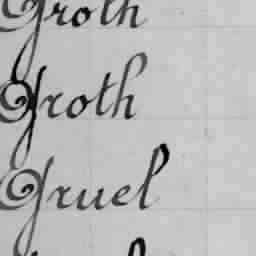 Groth
Groth
Gruel